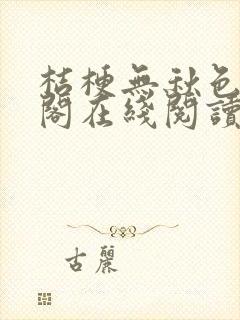 桔梗無秋色
閣在綫閱讀
古麗